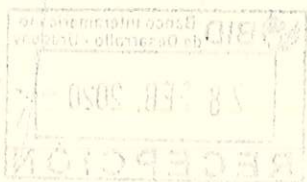 BID
Banco Interamericano
de Desarrollo - Uruguay
28 FEB. 2020
RECEPCIÓN